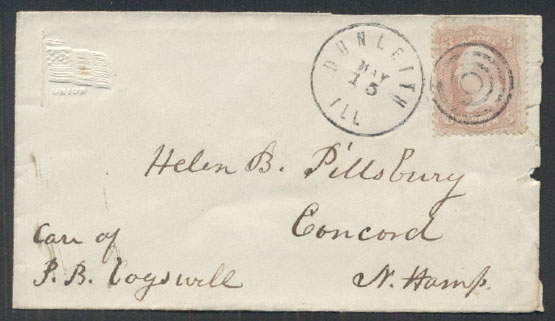 UNION
DUNLEITH
MAY
15
ILL
Helen B. Pillsbury
Concord
N. Hamp.
Care of
P. B. Cogswell